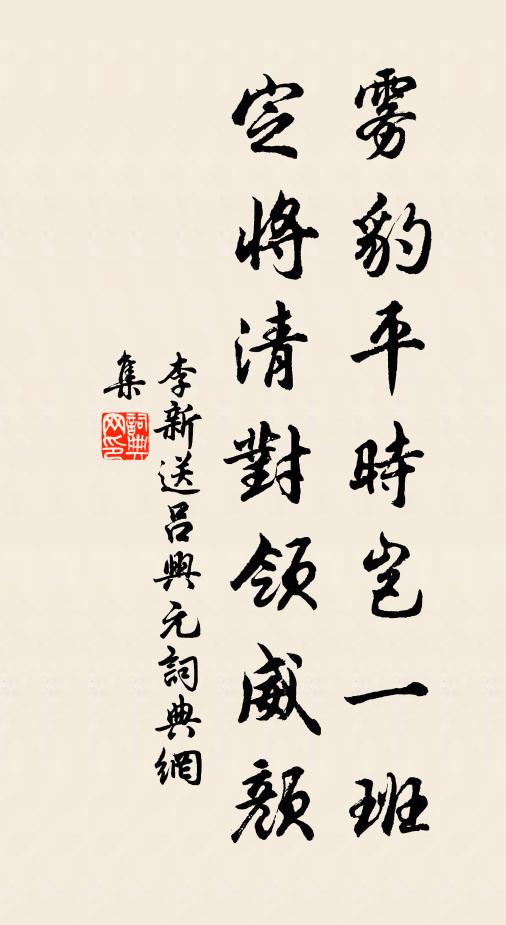 霧豹平時豈一班
定將清對領威顏
李新送呂興元詞典網
集
詞典
网印